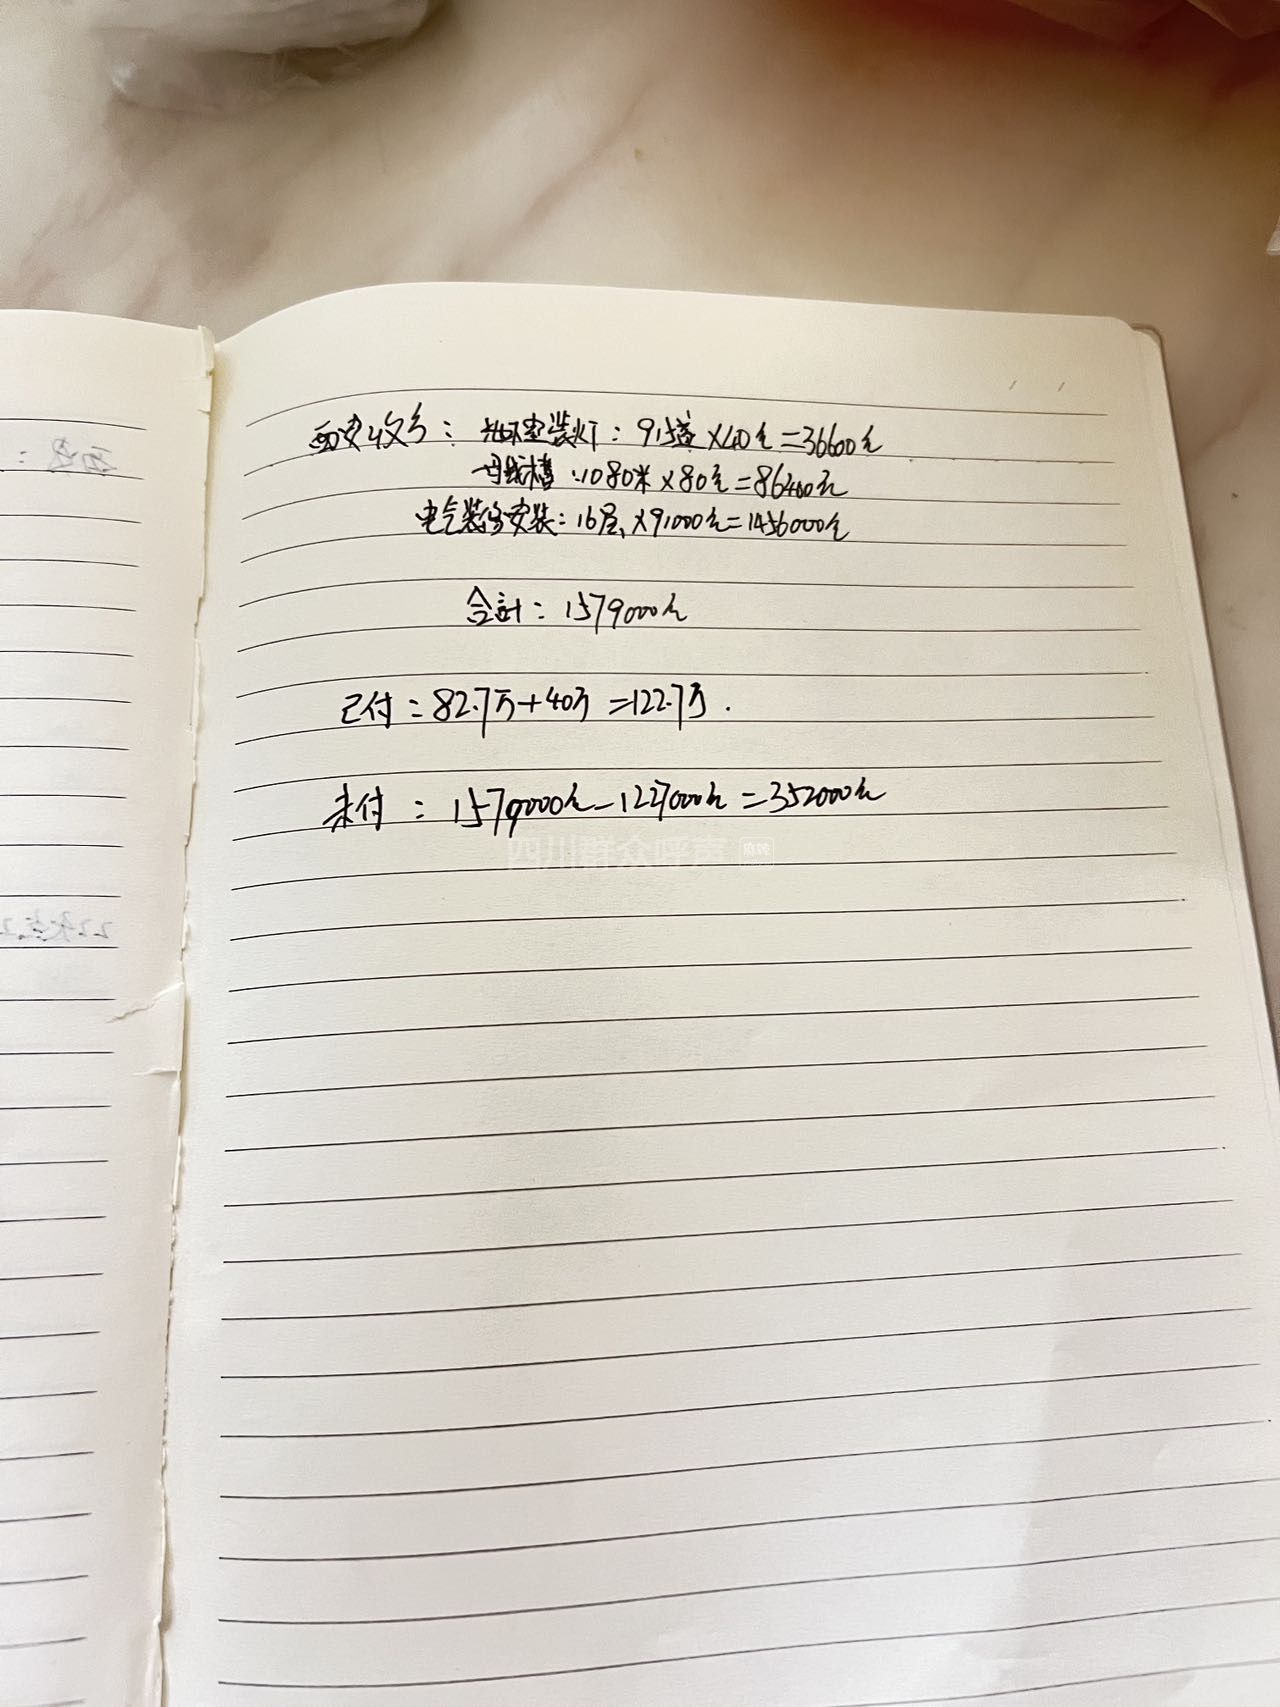 西安收方：地环安装灯：915盏×40元=36600元
母线槽：1080米×80元=86400元
电气装修安装：16层×91000元=1456000元
合計：1579000元
已付：82.7万+40万=122.7万.
未付：1579000元-1227000元=352000元
四川群众呼声